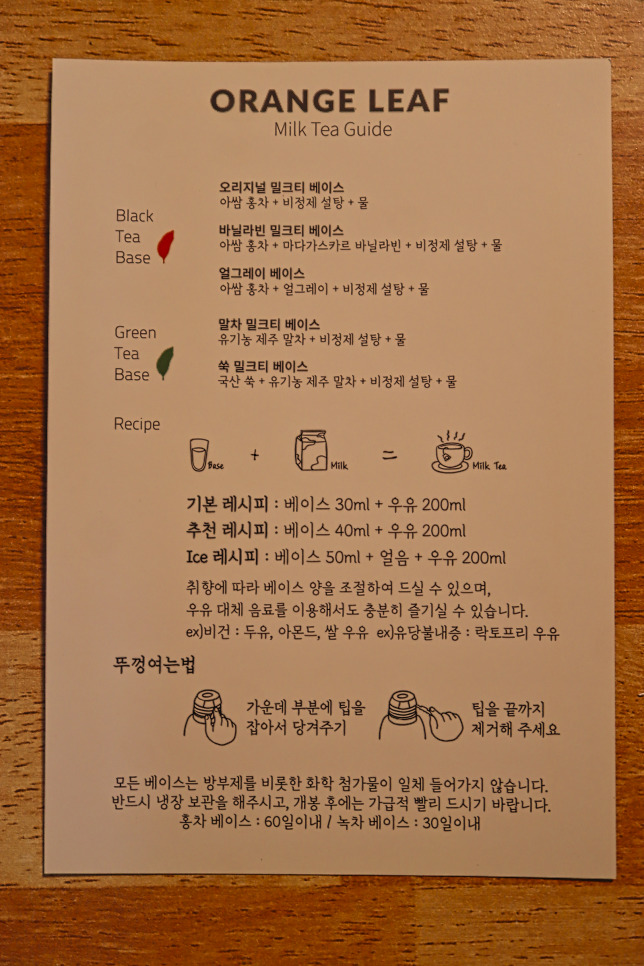 ORANGE LEAF
Milk Tea Guide
Black
Tea
Base
오리지널 밀크티 베이스
아쌈 홍차 + 비정제 설탕 + 물
바닐라빈 밀크티 베이스
아쌈 홍차 + 마다가스카르 바닐라빈 + 비정제 설탕 + 물
얼그레이 베이스
아쌈 홍차 + 얼그레이 + 비정제 설탕 + 물
Green
Tea
Base
말차 밀크티 베이스
유기농 제주 말차 + 비정제 설탕 + 물
쑥 밀크티 베이스
국산 쑥 + 유기농 제주 말차 + 비정제 설탕 + 물
Recipe
Base + Milk = Milk Tea
기본 레시피 : 베이스 30ml + 우유 200ml
추천 레시피 : 베이스 40ml + 우유 200ml
Ice 레시피 : 베이스 50ml + 얼음 + 우유 200ml
취향에 따라 베이스 양을 조절하여 드실 수 있으며,
우유 대체 음료를 이용해서도 충분히 즐기실 수 있습니다.
ex)비건 : 두유, 아몬드, 쌀 우유 ex)유당불내증 : 락토프리 우유
뚜껑여는법
가운데 부분에 팁을
잡아서 당겨주기
팁을 끝까지
제거해 주세요
모든 베이스는 방부제를 비롯한 화학 첨가물이 일체 들어가지 않습니다.
반드시 냉장 보관을 해주시고, 개봉 후에는 가급적 빨리 드시기 바랍니다.
홍차 베이스 : 60일이내 / 녹차 베이스 : 30일이내